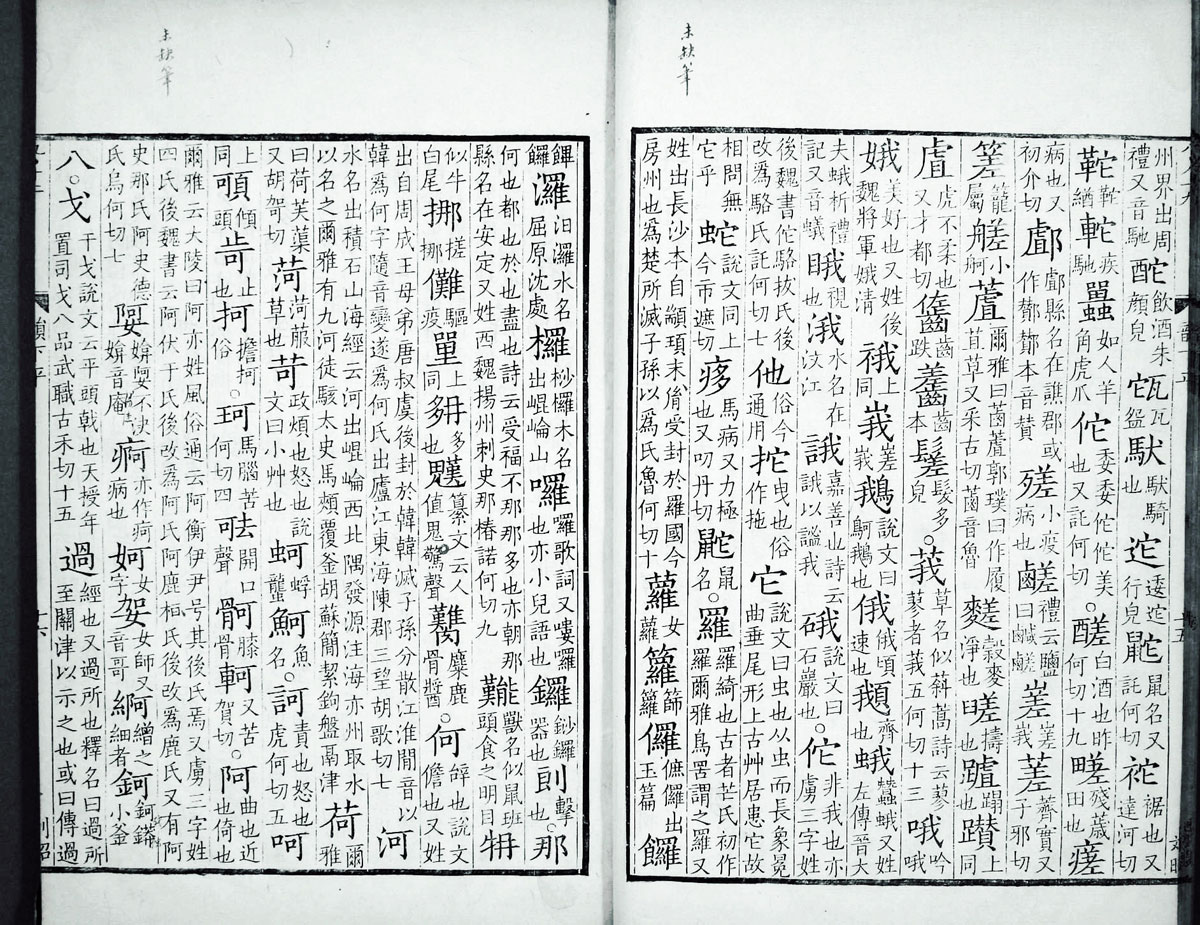 未缺筆
州界出周禮又音馳 酡飲酒朱顏皃 㼠瓦盌 馱馱騎也 迱逶迱行皃 鼧鼠名又託何切 袉裾也又達河切
緧 疾馳 如人羊角虎爪 佗委委佗佗美也又託何切○醝白酒也昨何切十九 㽨殘薉田也 瘥
病也又初介切 䣜䣜縣名在譙郡或作酇酇本音贊 㱡小疫病也 鹺禮云鹽曰鹹鹺 嵳嵳峩 蒫薺實又子邪切
籠屬 艖小舸 蔖爾雅曰菡蔖郭璞曰作履苴草又采古切菡音魯 䴾穀麥淨也 擣也 蹋也 躦上同
虘虎不柔也又才都切 齹齒跌 本 髮多皃○莪草名似蘚蒿詩云蓼蓼者莪五何切十三 哦吟哦
娥美好也又姓後魏將軍娥清 䄉上同 峩嵳峩 鵝說文曰鴚鵝也 俄俄頃速也 䫴齊也 蛾蠶蛾又姓左傳晉大
夫蛾析禮記又音蟻 睋視也 涐水名在汶江 誐嘉善也詩云誐以謐我 硪說文曰石巖也○佗非我也亦虜三字姓
後魏書佗駱拔氏後改爲駱氏託何切七 他俗今通用 拕曳也俗作拖 它說文曰虫也从虫而長象冤曲垂尾形上古艸居患它故
相問無它乎 蛇說文同上今市遮切 㾃馬病又力極也又叨丹切 鼧鼠名○羅羅綺也古者芒氏初作羅爾雅鳥罟謂之羅又
姓出長沙本自顓頊末胤受封於羅國今房州也爲楚所滅子孫以爲氏魯何切十 蘿女蘿 籮篩籮 儸儸出玉篇 饠
未缺筆
饆饠 㶒汨㶒水名屈原沈處 欏桫欏木名出崐崘山 囉囉歌詞又嘍囉也亦小兒語也 鑼鈔鑼器也 擊也○那
何也都也於也盡也詩云受福不那那多也亦朝那縣名在安定又姓西魏揚州刺史那椿諾何切九 獸名似鼠班頭食之明目
似牛白尾 挪搓挪 儺驅疫 單上同 多也 纂文云人値鬼驚聲 麋鹿骨醬○何辝也說文儋也又姓
出自周成王母弟唐叔虞後封於韓韓滅子孫分散江淮閒音以韓爲何字隨音變遂爲何氏出廬江東海陳郡三望胡歌切七 河
水名出積石山海經云河出崐崘西北隅發源注海亦州取水以名之爾雅有九河徒駭太史馬頰覆釜胡蘇簡絜鉤盤鬲津 荷爾雅
曰荷芙蕖又胡哿切 菏菏蕸草也 苛政煩也怒也說文曰小艸也 蚵蚵蠪 魺魚名○訶責也怒也虎何切五 呵
上同 傾頭 止也 抲擔抲俗○珂馬腦苦何切四 呿開口聲 膝骨 軻又苦賀切○阿曲也近也倚也
爾雅云大陵曰阿亦姓風俗通云阿衡伊尹号其後氏焉又虜三字姓四氏後魏書云阿伏于氏後改爲阿氏阿鹿桓氏後改爲鹿氏又有阿
史那氏阿史德氏烏何切七 媕娿不決媕音庵 痾病也亦作疴 妸女字 女師又音哥 繒之細者 鈳鈳䥈小釜
八○戈干戈說文云平頭戟也天授年置司戈八品武職古禾切十五 過經也又過所也釋名曰過所至關津以示之也或曰傳過